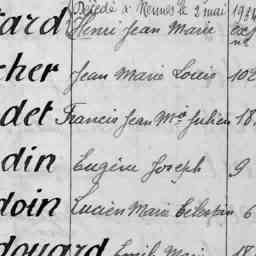 Décédé à Rennes le 2 mai 193
tard Henri Jean Marie
cher Jean Marie Louis 102
det Francis Jean Mie Julien 18
din Eugène Joseph 9
doin Lucien Marie Célestin 6
douard Emile Marie 18